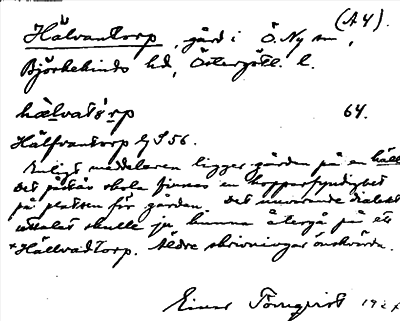 (A4).
Hälvantorp, gård i Ö. Ny sn,
Björkekinds hd, Östergötl. l.
hælvató̀rp 64.
Hälfvantorp GS 56.
Enligt meddelaren ligger gården på en häll
det påstås skola finnas en kopparfyndighet
på platsen för gården. Det nuvarande dialekt
uttalet skulle ju kunna återgå på ett
*Hällvadtorp. Äldre skrivningar önskvärda.
Einar Törnqvist 192